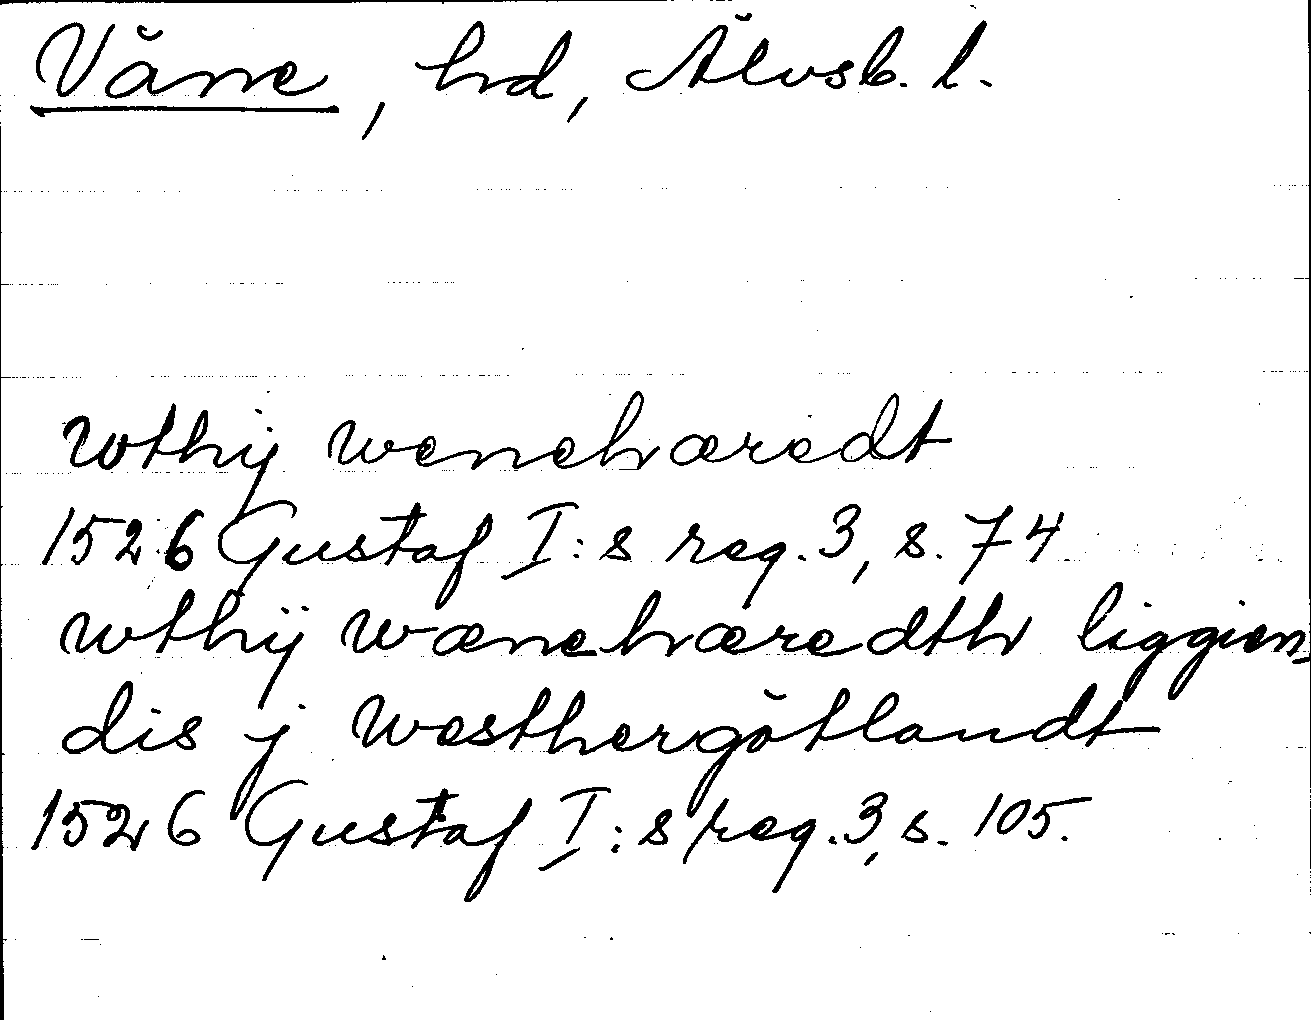 Väne, hd, Älvsb. l.
wthij weneharedt
1526 Gustaf I:s reg. 3, s. 74
wthij wæneheredth liggien-
dis j Westhergötlandt
1526 Gustaf I:s reg. 3, s. 105.